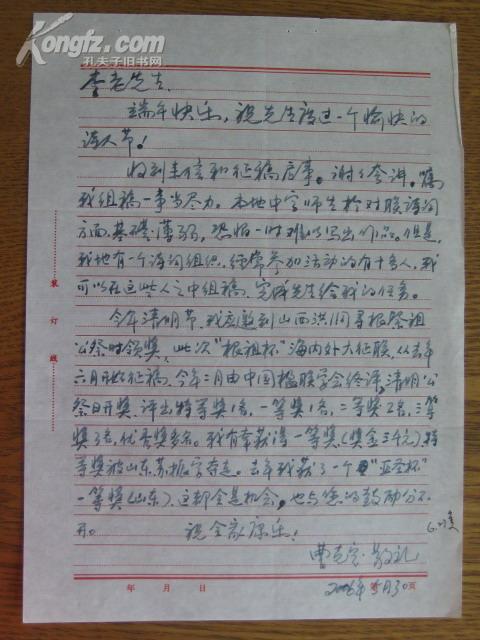 Kongfz.com
孔夫子旧书网
李老先生:
端午快乐,祝先生度过一个愉快的
诗人节!
收到来信和征稿启事。谢谢夸讲。嘱
我组稿一事当尽力。本地中学师生於对联诗词
方面,基礎薄弱,恐怕一时难以写出作品。但是,
我地有一个诗词组织,经常参加活动的有十多人,我
可以在这些人之中组稿,完成先生给我的任务。
今年清明节,我应邀到山西洪洞寻根祭祖
公祭时领奖,此次“根祖杯”海内外大征联,从去年
六月开始征稿,今年二月由中国楹联学会终评,清明公
祭日开奖,评出特等奖1名,一等奖1名,二等奖2名,三等
奖3名,优秀奖多名。我有幸获得一等奖(奖金三千元),特
等奖被山东苏振学夺走。去年我获了一个“亚圣杯”
一等奖(山东)。这都全是机会,也与您的鼓励分不
开。
祝全家康乐!
曹克定·敬礼
2006年5月30
装订线
年 月 日 第 页